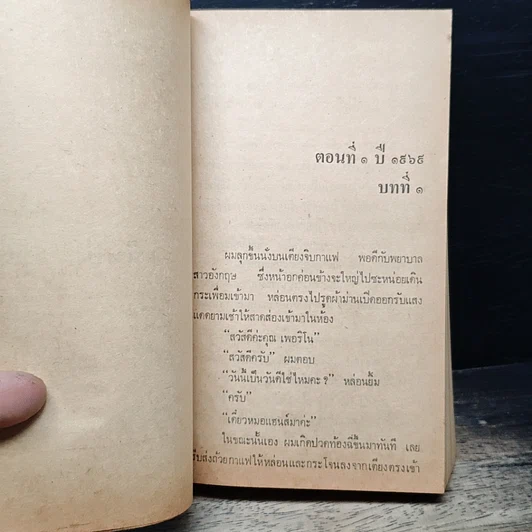 ตอนที่ ๑ ปี ๑๙๖๙
บทที่ ๑
ผมลุกขึ้นนั่งบนเตียงจิบกาแฟ พอดีกับพยาบาล
สาวอังกฤษ ซึ่งหน้าอกค่อนข้างจะใหญ่ไปซะหน่อยเดิน
กระเพื่อมเข้ามา หล่อนตรงไปรูดผ้าม่านเปิดออกรับแสง
แดดยามเช้าให้สาดส่องเข้ามาในห้อง
“สวัสดีค่ะคุณ เพอริโน”
“สวัสดีครับ” ผมตอบ
“วันนี้เป็นวันดีใช่ไหมคะ ?” หล่อนยิ้ม
“ครับ”
“เดี๋ยวหมอแฮนส์มาค่ะ”
ในขณะนั้นเอง ผมเกิดปวดท้องฉี่ขึ้นมาทันที เลย
รีบส่งถ้วยกาแฟให้หล่อนและกระโจนลงจากเตียงตรงเข้า